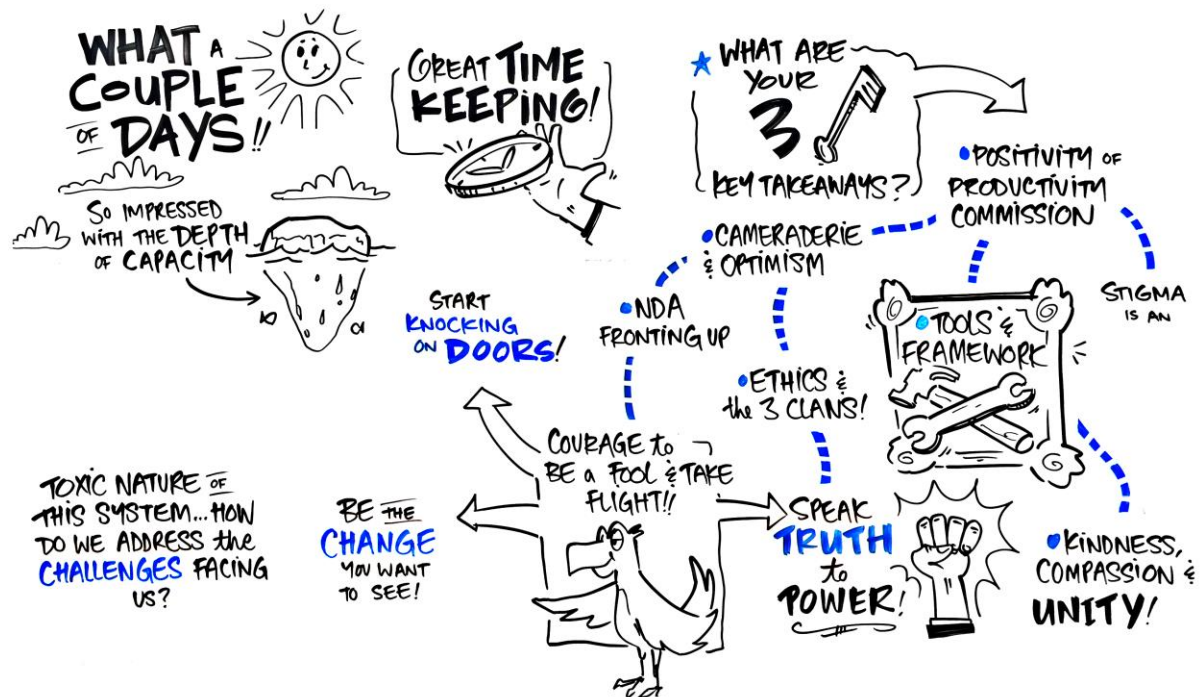 WHAT A
COUPLE
OF DAYS!!
SO IMPRESSED
WITH THE DEPTH
OF CAPACITY
GREAT TIME
KEEPING!
WHAT ARE
YOUR
3
KEY TAKEAWAYS?
• POSITIVITY OF
PRODUCTIVITY
COMMISSION
• CAMERADERIE
& OPTIMISM
• NDA
FRONTING UP
STIGMA
IS AN
• TOOLS &
FRAMEWORK
• ETHICS &
the 3 CLANS!
START
KNOCKING
ON DOORS!
COURAGE to
BE a FOOL & TAKE
FLIGHT!!
TOXIC NATURE OF
THIS SYSTEM...HOW
DO WE ADDRESS the
CHALLENGES FACING
US?
BE THE
CHANGE
YOU WANT
TO SEE!
SPEAK
TRUTH
to
POWER!
• KINDNESS,
COMPASSION &
UNITY!